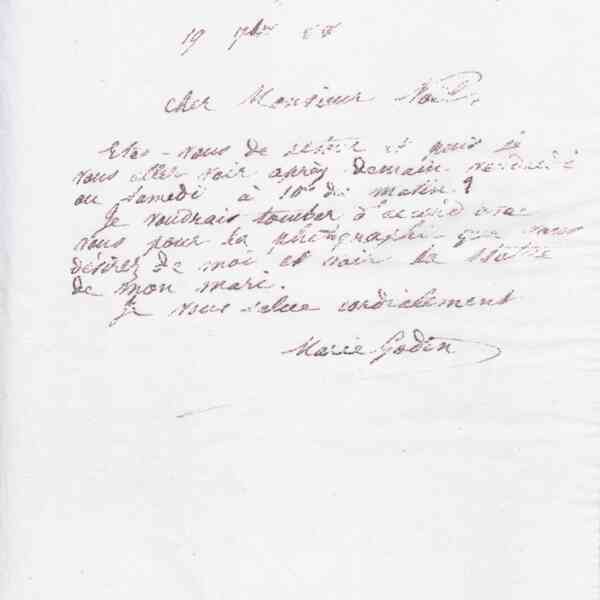 19 7bre 88
Cher Monsieur Noël,
Etes-vous de retour et puis-je
vous aller voir après-demain vendredi
ou samedi à 10h du matin ?
Je voudrais tomber d'accord avec
vous pour la photographie que vous
désirez de moi et voir la statue
de mon mari.
Je vous salue cordialement
Marie Godin